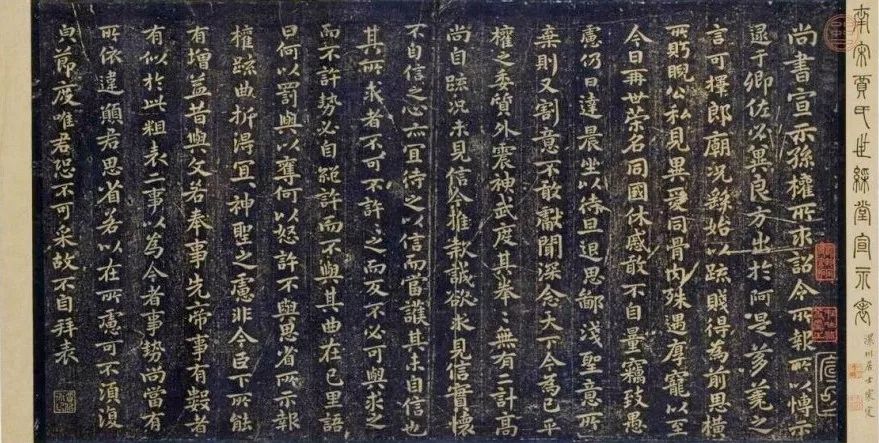 南宋賈氏世綵堂宣示表
尚書宣示孫權所求詔令所報所以博示
逮于卿佐必冀良方出於阿是芻蕘之
言可擇郎廟況繇始以疏賤得為前思橫
所眄睨公私見異愛同骨肉殊遇厚寵以至
今日再世榮名同國休慼敢不自量竊致愚
慮仍日達晨坐以待旦退思鄙淺聖意所
棄則又割意不敢獻聞深念天下今為已平
權之委質外震神武度其拳〻無有二計高
尚自疏況未見信今推款誠欲求見信實懷
不自信之心亦宜待之以信而當護其未自信也
其所求者不可不許〻之而反不必可與求之
而不許勢必自絕許而不與其曲在己里語
曰何以罰與以奪何以怒許不與思省所示報
權疏曲折得宜〻神聖之慮非今臣下所能
有增益昔與文若奉事先帝事有數者
有似於此粗表二事以為今者事勢尚當有
所依違願君思省若以在所慮可不須復
貌節度唯君恐不可采故不自拜表